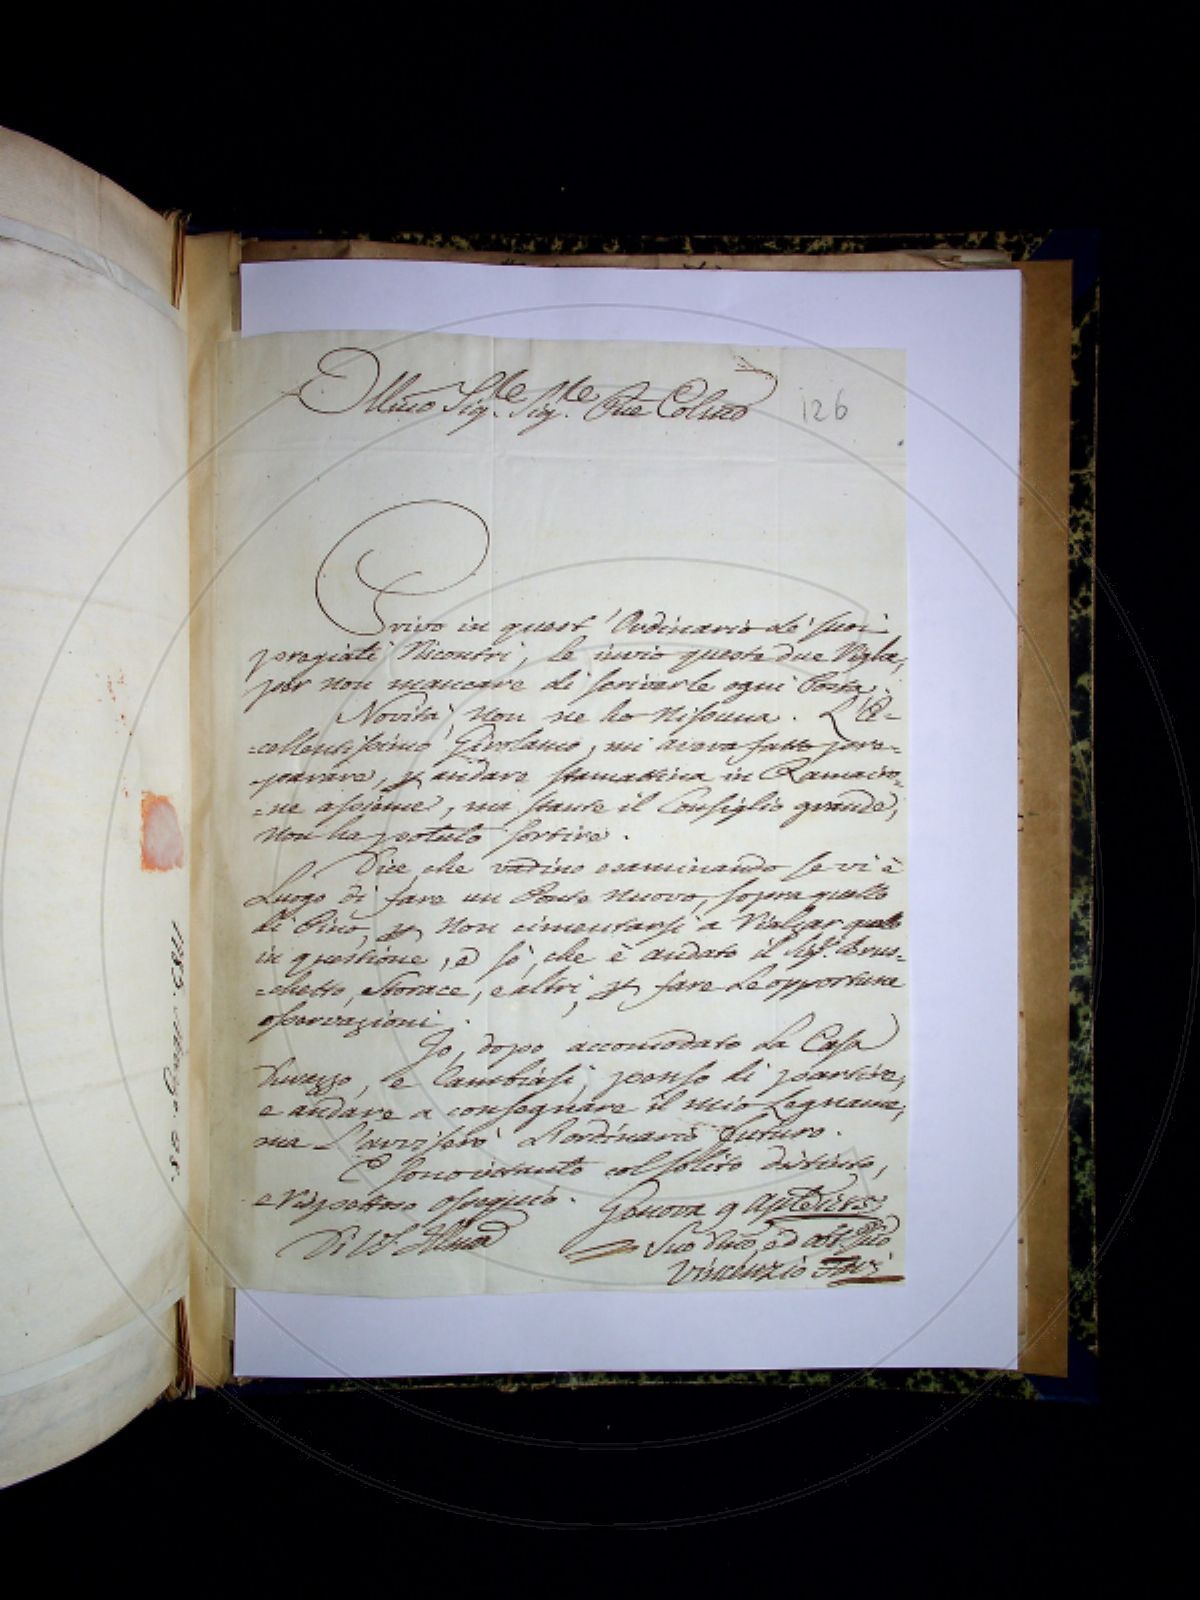 Illmo Sig.re Sig.re Pne Colmo
126
Privo in quest' Ordinario de' suoi
pregiati Riscontri, le invio queste due Righe,
per non mancare di scriverle ogni Posta.
Novità, non ne ho nissuna. L'Ec=
=cellentissimo Girolamo, mi aveva fatto pre=
=parare, p andare stamattina in Ramairo=
=ne assieme, ma stante il Consiglio grande,
non ha potuto sortire.
Dice, che vadino esaminando se vi è
Luogo di fare un Ponte nuovo, sopra quello
di Pino, p non cimentarsi a Rialzar quello
in questione, e sò, che è andato il Sigr. Brus=
=chetto, Storace, e altri, p fare le opportune
osservazioni.
Io, dopo accomodato la Casa
Durazzo, e Cambiasi, penso di partire,
e andare a consegnare il mio Legname,
ma L'avviserò L'ordinario futuro.
E sono intanto col solito distinto,
e Rispettoso ossequio.
Genova 9
Di VS. Illma
Suo
Vincenzio
1785.